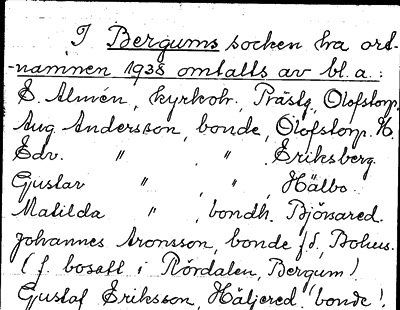 I Bergums socken ha ort-
-namnen 1938 omtalts av bl. a.:
E. Almén, kyrkohr., Prästg., Olofstorp.
Aug. Andersson, bonde, Olofstorp.
Edv. " " Eriksberg.
Gustav " , " , Hälbo.
Matilda " , bondh. Björsared.
Johannes Aronsson, bonde f.d., Bohus.
(f. bosatt i Rördalen, Bergum).
Gustaf Eriksson, Häljered (bonde).